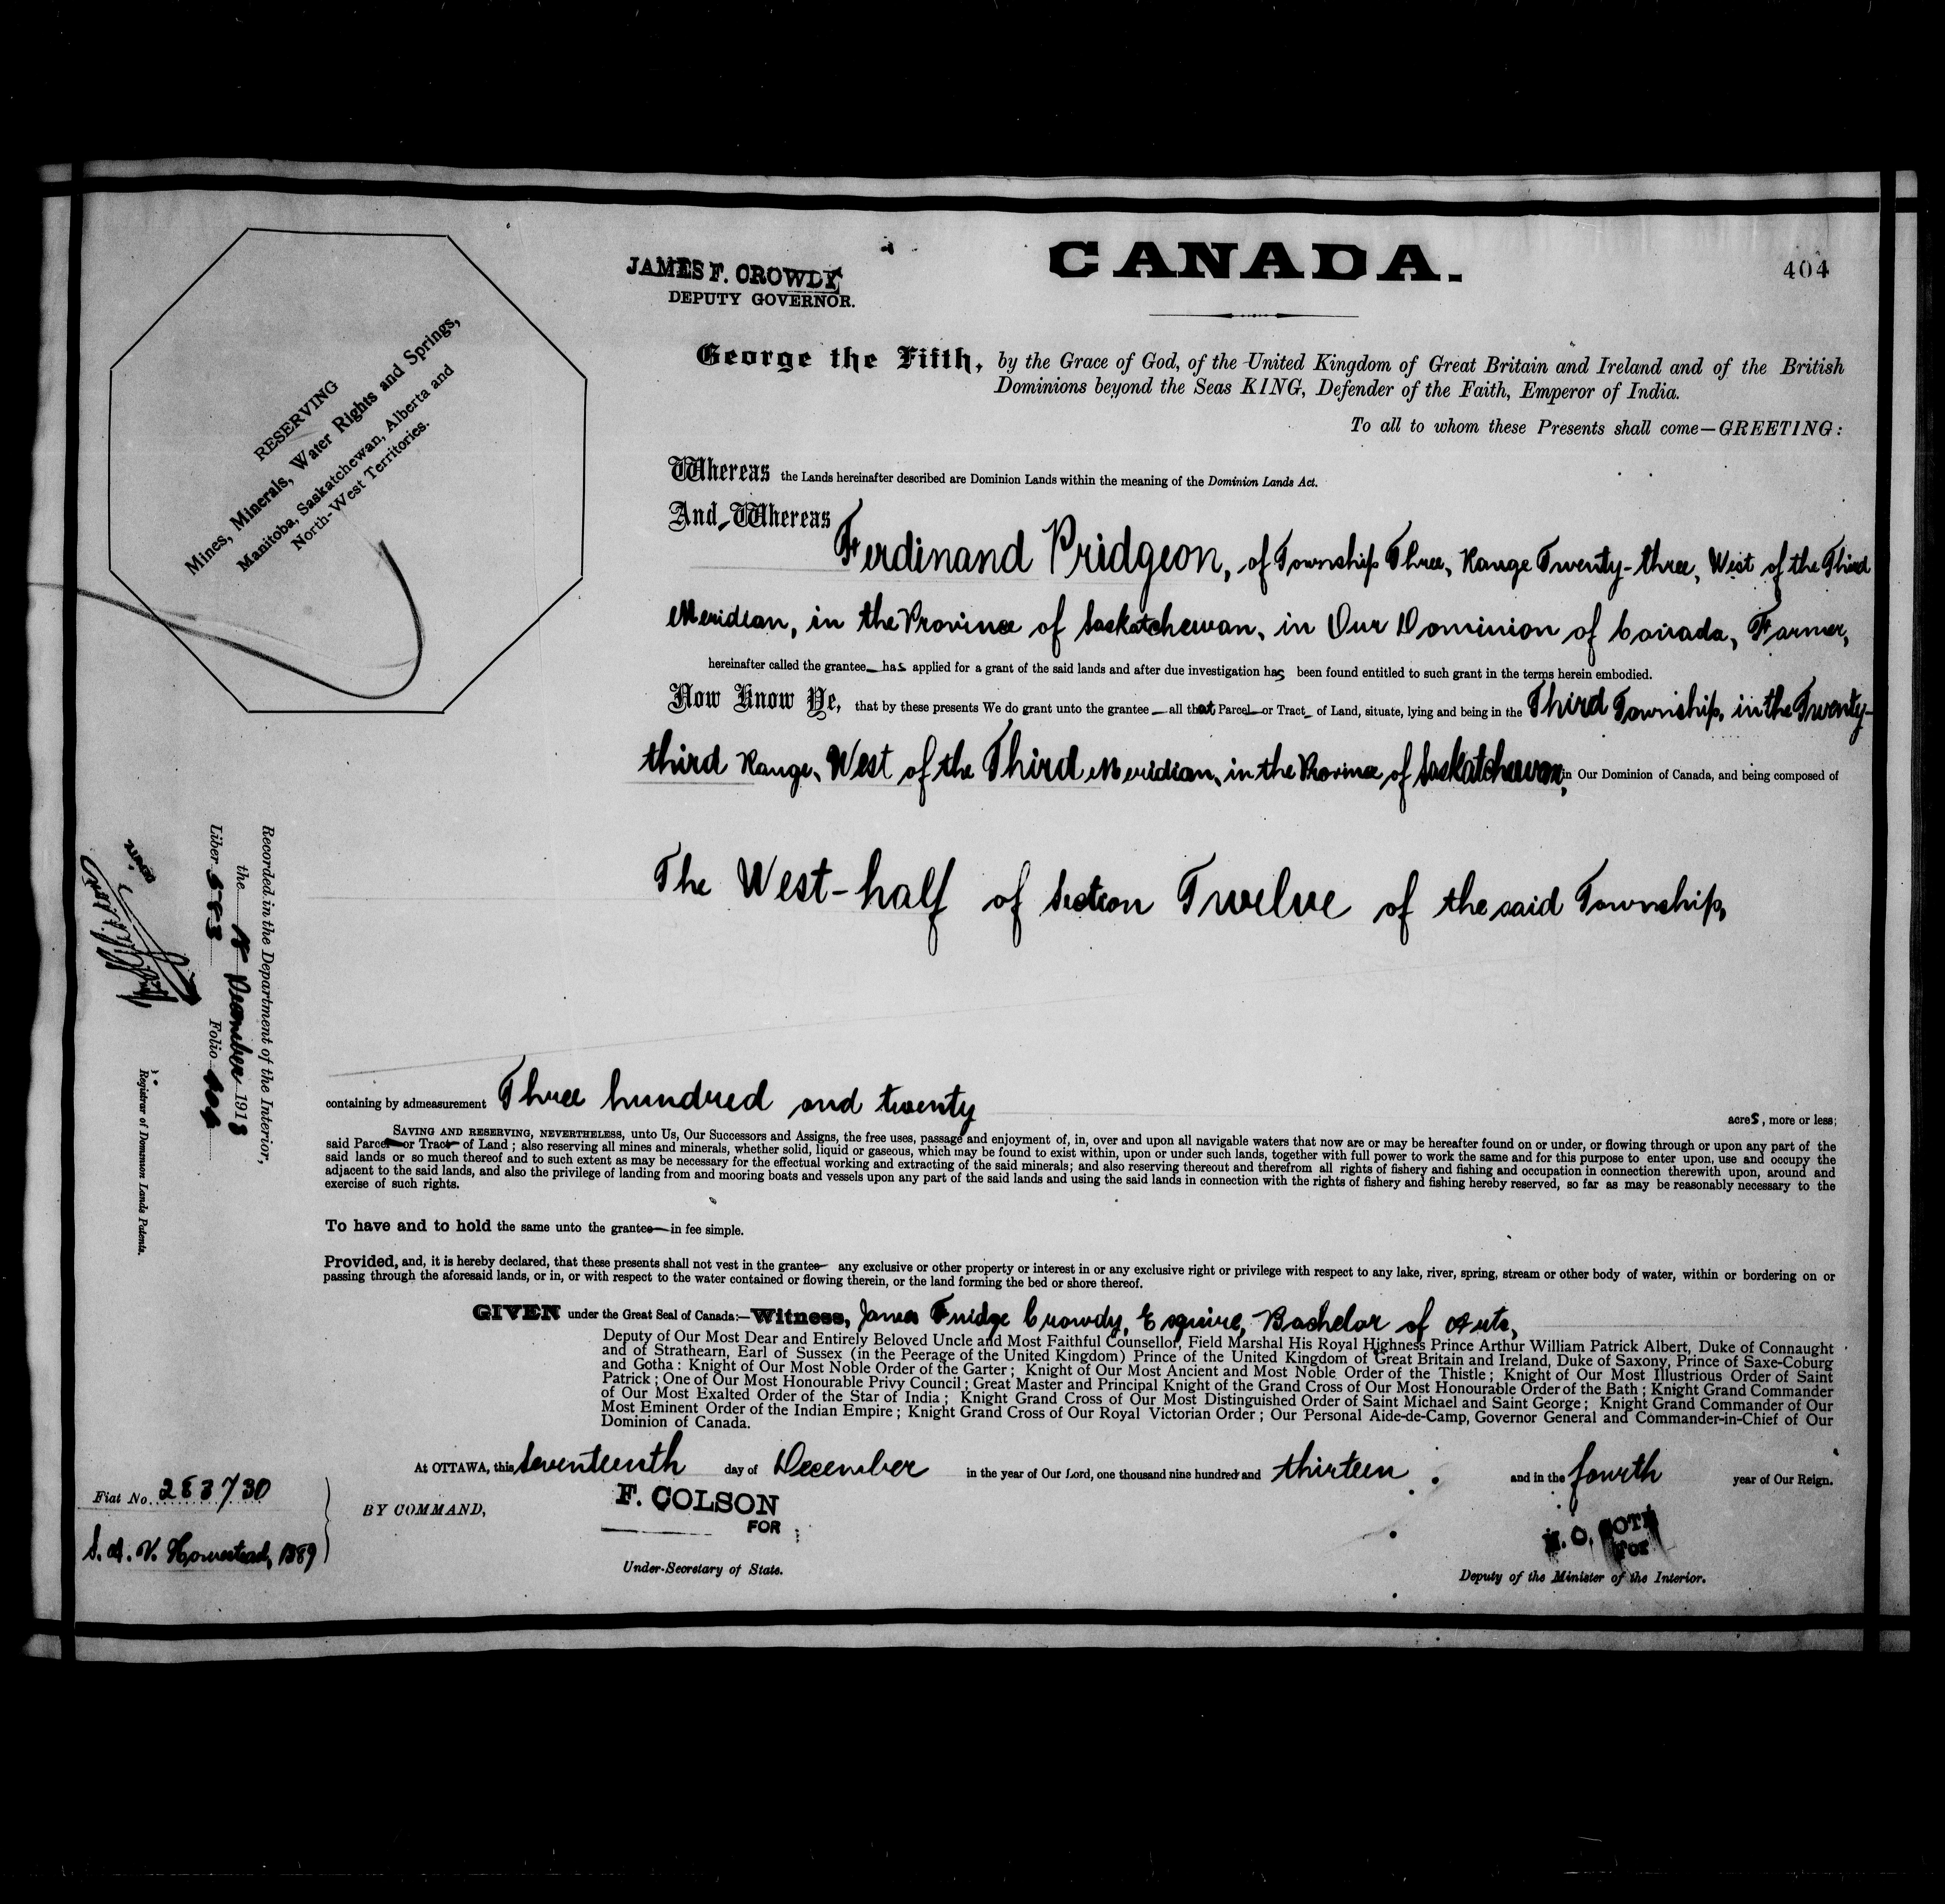 CANADA.
404
JAMES F. CROWDY
DEPUTY GOVERNOR.
RESERVING
Mines, Minerals, Water Rights and Springs,
Manitoba, Saskatchewan, Alberta and
North-West Territories.
George the Fifth, by the Grace of God, of the United Kingdom of Great Britain and Ireland and of the British
Dominions beyond the Seas KING, Defender of the Faith, Emperor of India.
To all to whom these Presents shall come—GREETING:
Whereas the Lands hereinafter described are Dominion Lands within the meaning of the Dominion Lands Act.
And Whereas
Ferdinand Pridgeon, of Township Three, Range Twenty-three, West of the Third
Meridian, in the Province of Saskatchewan, in Our Dominion of Canada, Farmer,
hereinafter called the grantee has applied for a grant of the said lands and after due investigation has been found entitled to such grant in the terms herein embodied.
Now Know Ye, that by these presents We do grant unto the grantee all that Parcel or Tract of Land, situate, lying and being in the Third Township, in the Twenty-
third Range, West of the Third Meridian, in the Province of Saskatchewan, in Our Dominion of Canada, and being composed of
The West-half of Section Twelve of the said Township,
containing by admeasurement Three hundred and twenty acres, more or less;
SAVING AND RESERVING, NEVERTHELESS, unto Us, Our Successors and Assigns, the free uses, passage and enjoyment of, in, over and upon all navigable waters that now are or may be hereafter found on or under, or flowing through or upon any part of the
said Parcel or Tract of Land; also reserving all mines and minerals, whether solid, liquid or gaseous, which may be found to exist within, upon or under such lands, together with full power to work the same and for this purpose to enter upon, use and occupy the
said lands or so much thereof and to such extent as may be necessary for the effectual working and extracting of the said minerals; and also reserving thereout and therefrom all rights of fishery and fishing and occupation in connection therewith upon, around and
adjacent to the said lands, and also the privilege of landing from and mooring boats and vessels upon any part of the said lands and using the said lands in connection with the rights of fishery and fishing hereby reserved, so far as may be reasonably necessary to the
exercise of such rights.
To have and to hold the same unto the grantee in fee simple.
Provided, and, it is hereby declared, that these presents shall not vest in the grantee any exclusive or other property or interest in or any exclusive right or privilege with respect to any lake, river, spring, stream or other body of water, within or bordering on or
passing through the aforesaid lands, or in, or with respect to the water contained or flowing therein, or the land forming the bed or shore thereof.
GIVEN under the Great Seal of Canada:—Witness, James Fuidge Crowdy, Esquire, Bachelor of Arts,
Deputy of Our Most Dear and Entirely Beloved Uncle and Most Faithful Counsellor, Field Marshal His Royal Highness Prince Arthur William Patrick Albert, Duke of Connaught
and of Strathearn, Earl of Sussex (in the Peerage of the United Kingdom) Prince of the United Kingdom of Great Britain and Ireland, Duke of Saxony, Prince of Saxe-Coburg
and Gotha: Knight of Our Most Noble Order of the Garter; Knight of Our Most Ancient and Most Noble Order of the Thistle; Knight of Our Most Illustrious Order of Saint
Patrick; One of Our Most Honourable Privy Council; Great Master and Principal Knight of the Grand Cross of Our Most Honourable Order of the Bath; Knight Grand Commander
of Our Most Exalted Order of the Star of India; Knight Grand Cross of Our Most Distinguished Order of Saint Michael and Saint George; Knight Grand Commander of Our
Most Eminent Order of the Indian Empire; Knight Grand Cross of Our Royal Victorian Order; Our Personal Aide-de-Camp, Governor General and Commander-in-Chief of Our
Dominion of Canada.
At OTTAWA, this Seventeenth day of December in the year of Our Lord, one thousand nine hundred and thirteen and in the fourth year of Our Reign.
BY COMMAND,
F. COLSON
FOR
Under-Secretary of State.
N. O. COTE
For
Deputy of the Minister of the Interior.
Fiat No. 283730
S. A. V. Homestead, 1889
Recorded in the Department of the Interior,
the December 1913
Liber 583 Folio 404
Registrar of Dominion Lands Patents.